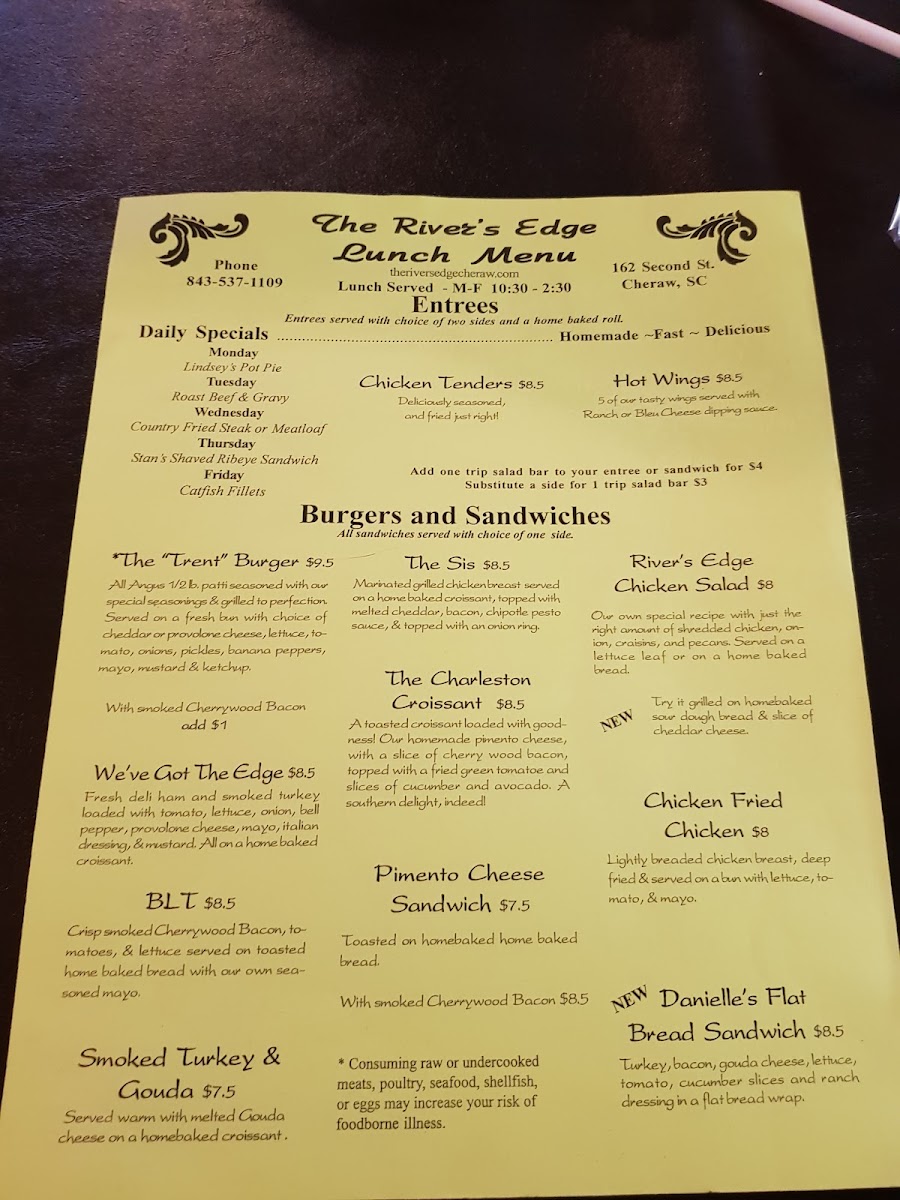 The River's Edge
Lunch Menu
Phone
843-537-1109
theriversedgecheraw.com
Lunch Served - M-F 10:30 - 2:30
162 Second St.
Cheraw, SC
Entrees
Entrees served with choice of two sides and a home baked roll.
Daily Specials ........................ Homemade ~Fast ~ Delicious
Monday
Lindsey's Pot Pie
Tuesday
Roast Beef & Gravy
Wednesday
Country Fried Steak or Meatloaf
Thursday
Stan's Shaved Ribeye Sandwich
Friday
Catfish Fillets
Chicken Tenders $8.5
Deliciously seasoned,
and fried just right!
Hot Wings $8.5
5 of our tasty wings served with
Ranch or Bleu Cheese dipping sauce.
Add one trip salad bar to your entree or sandwich for $4
Substitute a side for 1 trip salad bar $3
Burgers and Sandwiches
All sandwiches served with choice of one side.
*The "Trent" Burger $9.5
All Angus 1/2 lb. patti seasoned with our
special seasonings & grilled to perfection.
Served on a fresh bun with choice of
cheddar or provolone cheese, lettuce, to-
mato, onions, pickles, banana peppers,
mayo, mustard & ketchup.
With smoked Cherrywood Bacon
add $1
We've Got The Edge $8.5
Fresh deli ham and smoked turkey
loaded with tomato, lettuce, onion, bell
pepper, provolone cheese, mayo, italian
dressing, & mustard. All on a home baked
croissant.
BLT $8.5
Crisp smoked Cherrywood Bacon, to-
matoes, & lettuce served on toasted
home baked bread with our own sea-
soned mayo.
Smoked Turkey &
Gouda $7.5
Served warm with melted Gouda
cheese on a homebaked croissant.
The Sis $8.5
Marinated grilled chicken breast served
on a home baked croissant, topped with
melted cheddar, bacon, chipotle pesto
sauce, & topped with an onion ring.
The Charleston
Croissant $8.5
A toasted croissant loaded with good-
ness! Our homemade pimento cheese,
with a slice of cherry wood bacon,
topped with a fried green tomatoe and
slices of cucumber and avocado. A
southern delight, indeed!
Pimento Cheese
Sandwich $7.5
Toasted on homebaked home baked
bread.
With smoked Cherrywood Bacon $8.5
* Consuming raw or undercooked
meats, poultry, seafood, shellfish,
or eggs may increase your risk of
foodborne illness.
River's Edge
Chicken Salad $8
Our own special recipe with just the
right amount of shredded chicken, on-
ion, craisins, and pecans. Served on a
lettuce leaf or on a home baked
bread.
NEW
Try it grilled on homebaked
sour dough bread & slice of
cheddar cheese.
Chicken Fried
Chicken $8
Lightly breaded chicken breast, deep
fried & served on a bun with lettuce, to-
mato, & mayo.
NEW Danielle's Flat
Bread Sandwich $8.5
Turkey, bacon, gouda cheese, lettuce,
tomato, cucumber slices and ranch
dressing in a flat bread wrap.